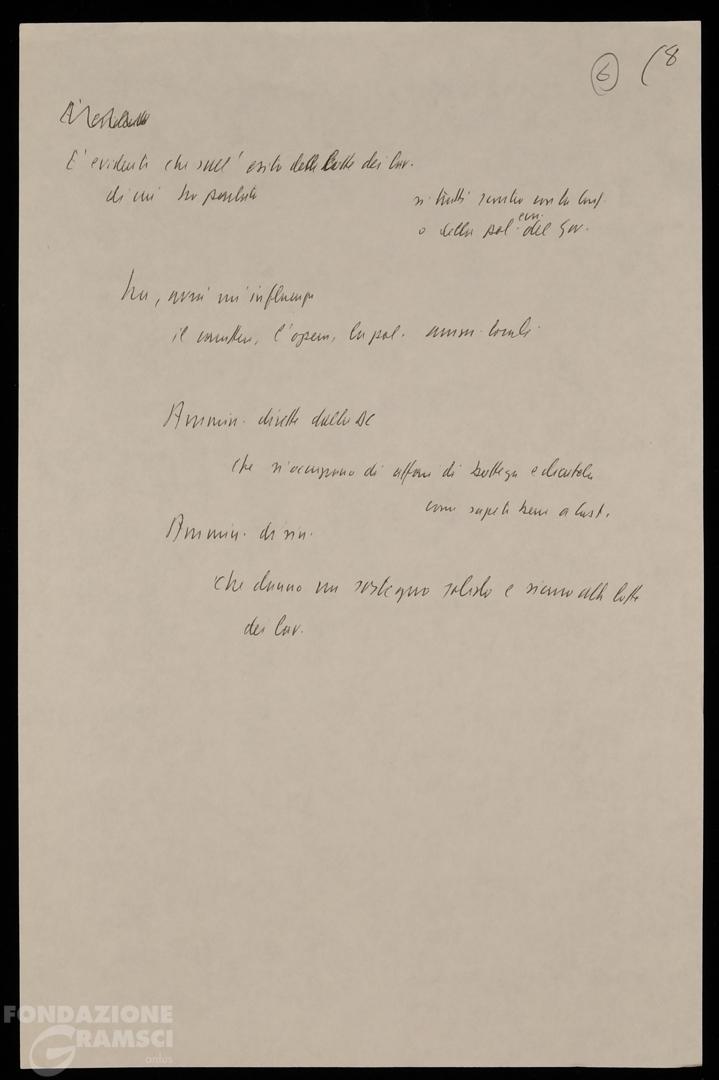 6 (8
E' evidente che sull'esito delle lotte dei lav.
di cui ho parlato
si tratti scontro con la Conf.
o della pol. ec. del Gov.
ha, assai un'influenza
il carattere, l'opera, la pol. amm. locali.
Ammin. dirette dalla DC
che si occupano di affari di bottega e clientela
come sapete bene a Cast.
Ammin. di sin.
che danno un sostegno solido e sicuro alle lotte
dei lav.
FONDAZIONE
GRAMSCI
onlus